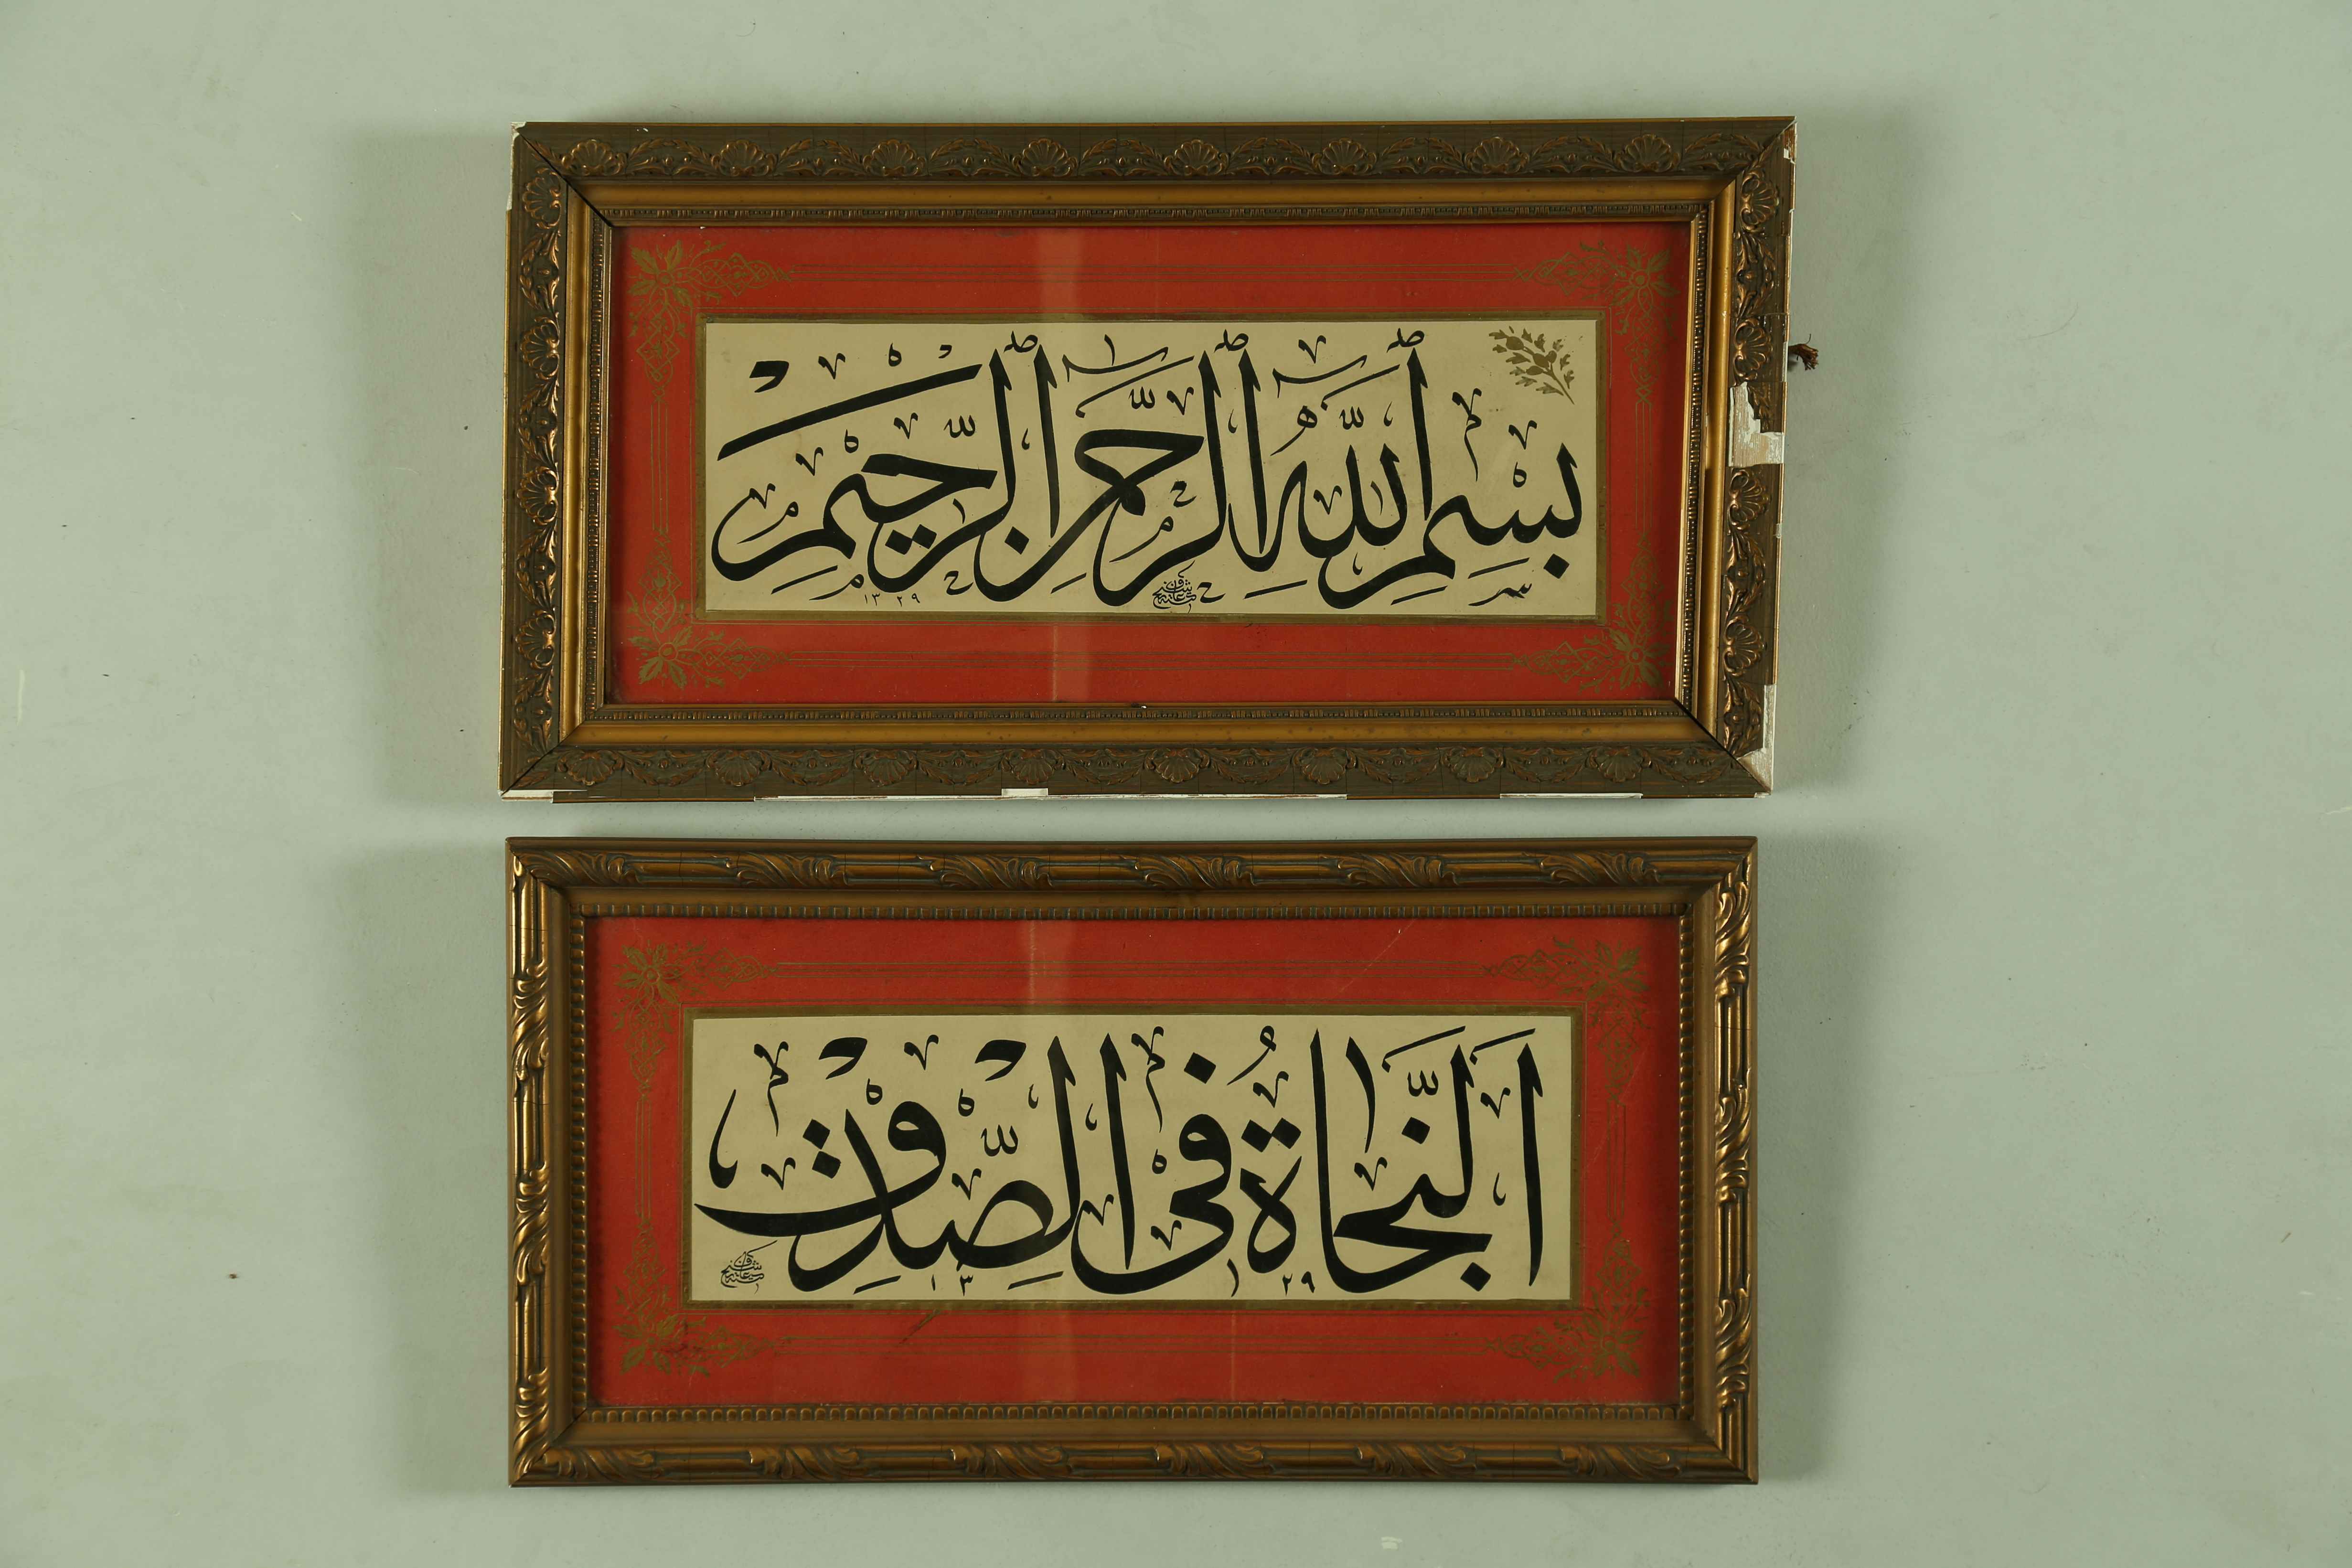 بِسْمِ ٱللَّهِ ٱلرَّحْمَٰنِ ٱلرَّحِيمِ
١٣٢٩
اَلنَّجَاةُ فِي الصِّدْقِ
١٣٢٩